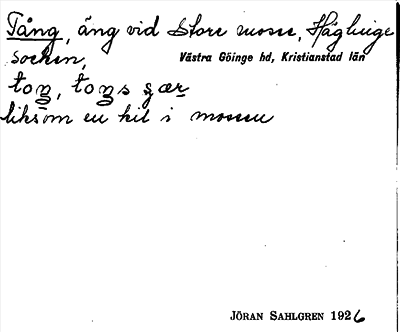 Tång, äng vid Store mosse, Häglinge
socken, Västra Göinge hd, Kristianstad län
liksom en kil i mossen
JÖRAN SAHLGREN 1926